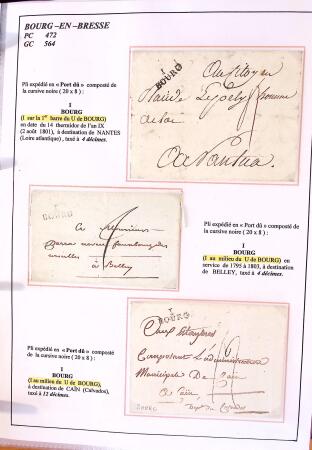 BOURG-EN-BRESSE
PC 472
GC 564
Pli expédié en « Port dû » composté de
la cursive noire ( 20 x 8 ) :
1
BOURG
(I sur la 1er barre du U de BOURG)
en date du 14 thermidor de l'an IX
(2 août 1801), à destination de NANTES
(Loire atlantique), taxé à 4 décimes.
1
BOURG
Au Citoyen
homme
de loi
A Nantua
1
BOURG
A Messieurs
à Belley
Pli expédié en « Port dû » composté de
la cursive noire ( 20 x 8 ) :
1
BOURG
(I au milieu du U de BOURG) en
service de 1795 à 1803, à destination
de BELLEY, taxé à 4 décimes.
Pli expédié en « Port dû » composté de
la cursive noire ( 20 x 8 ) :
1
BOURG
(I au milieu du U de BOURG),
à destination de CAÏN (Calvados),
taxé à 12 décimes.
1
BOURG
Aux
Composant L'administration
Municipale De Caën
A Caën
Dept du Calvados
BOURG